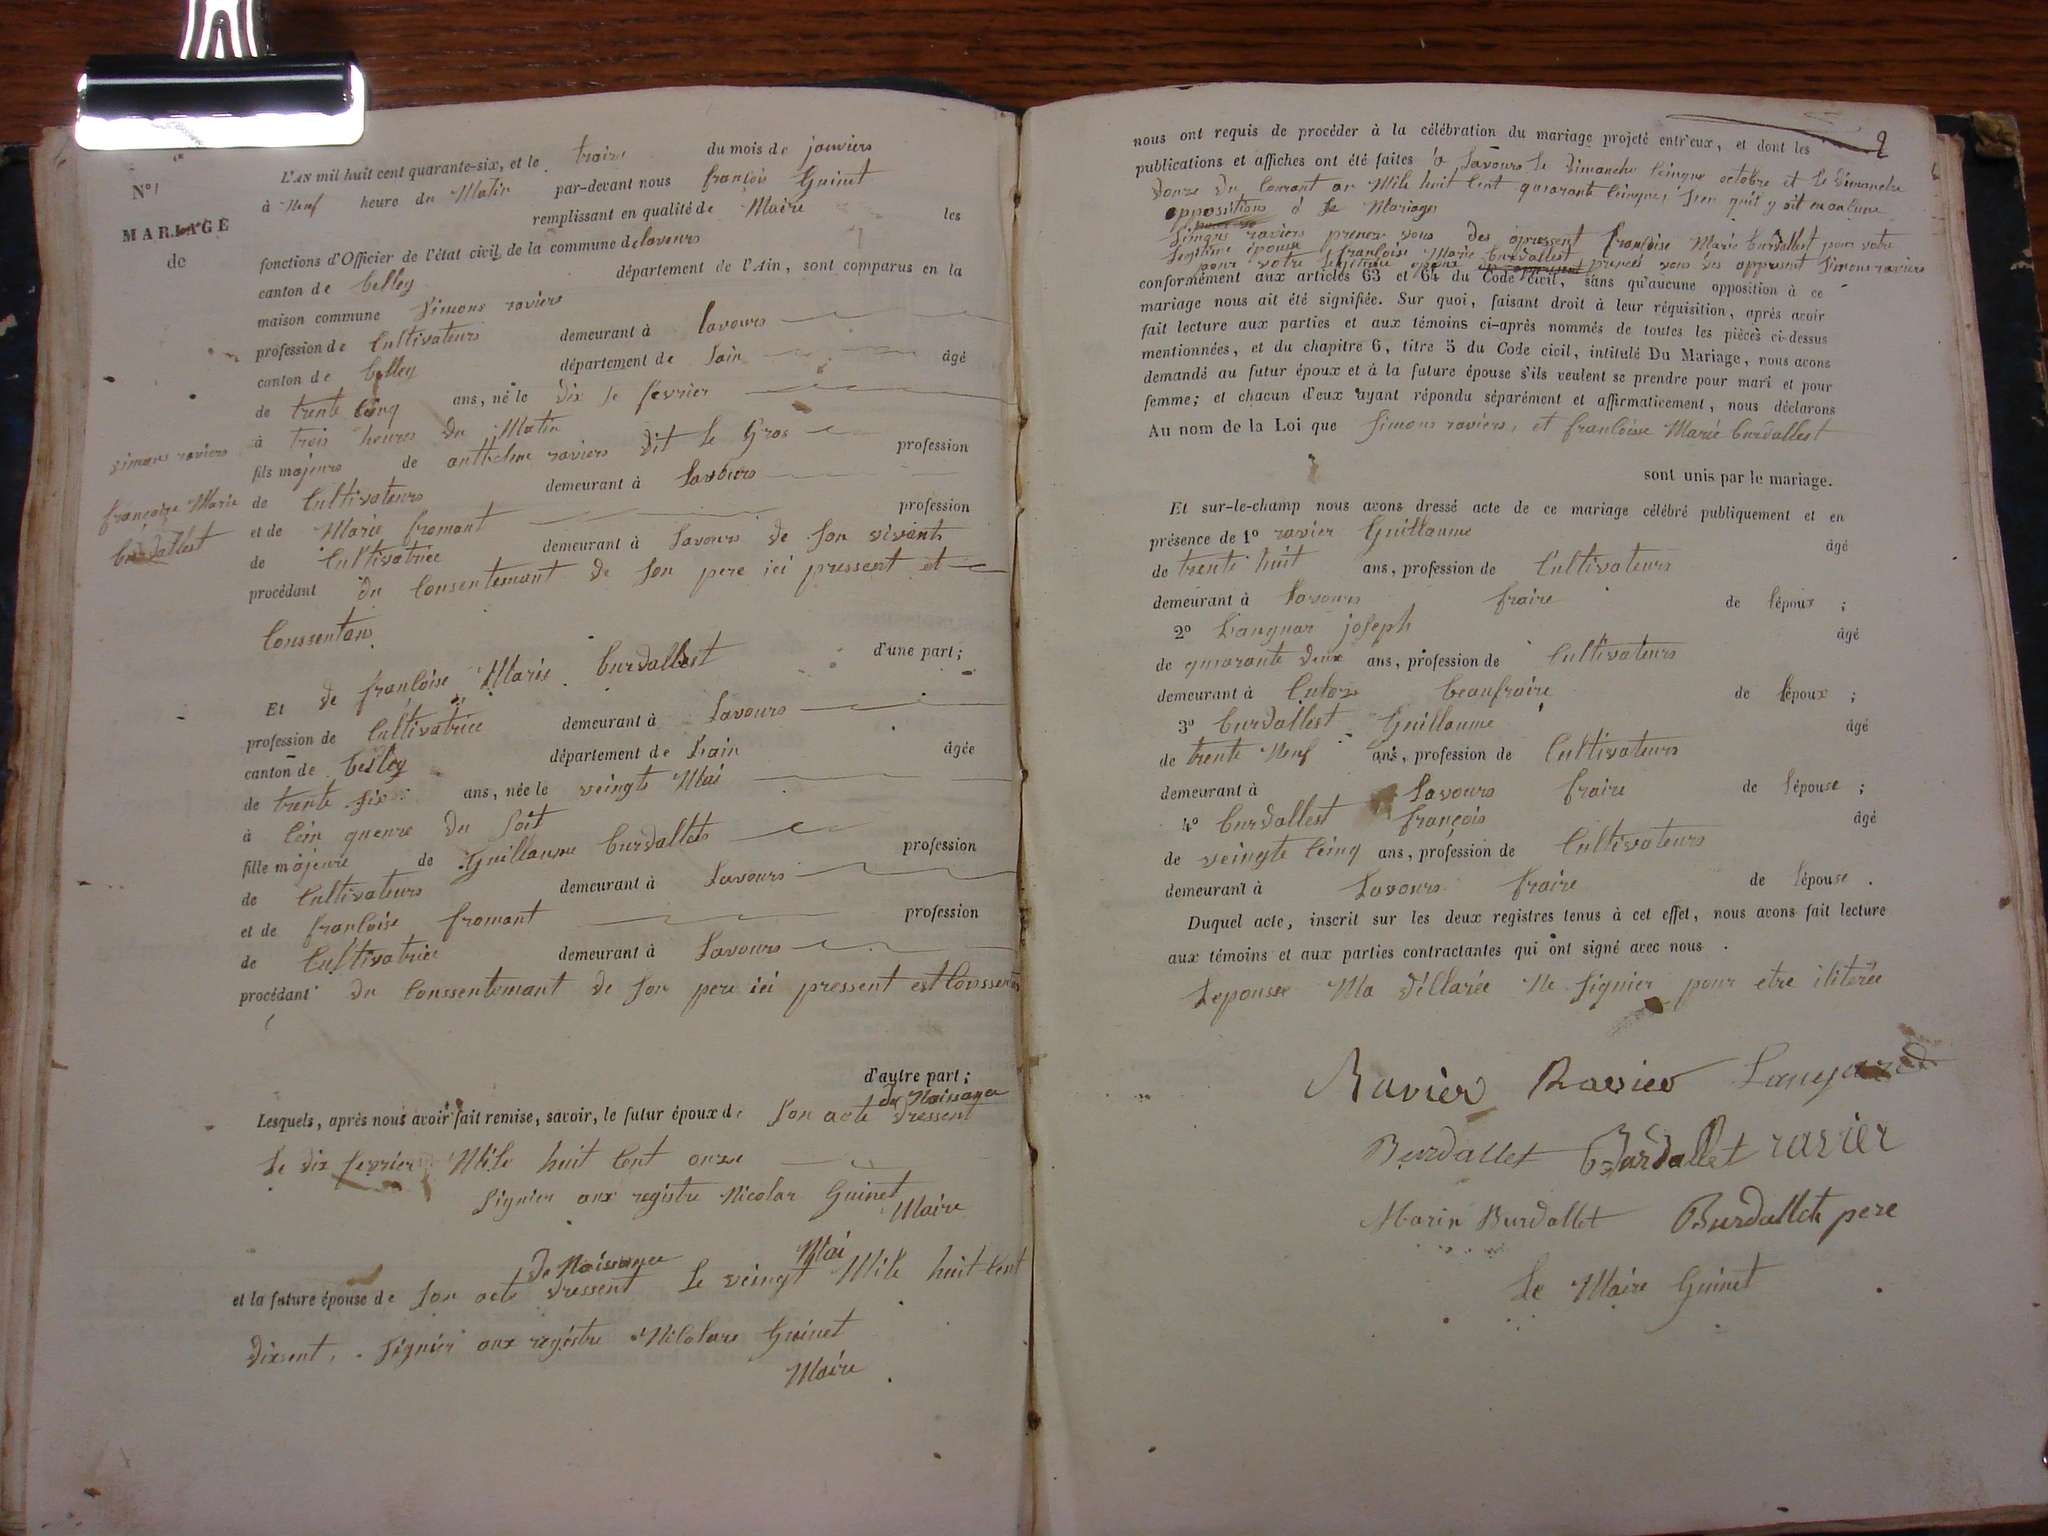 N° 1
MARIAGE
de
simons raviers
françoise Marie
burdallest
L'AN mil huit cent quarante-six, et le traize du mois de janviers
à Neuf heure du Matin par-devant nous françois Guinet
remplissant en qualité de Maire les
fonctions d'Officier de l'état civil de la commune de lavours
canton de belley département de l'Ain, sont comparus en la
maison commune Simons raviers
profession de Cultivateurs demeurant à lavours
canton de belley département de lain âgé
de trente cinq ans, né le dix le fevrier
à trois heures du Matin
fils majeurs de anthelme raviers dit le Gros profession
de Cultivateurs demeurant à Lavours
et de Marie fromant profession
de Cultivatrice demeurant à Lavours de son vivant
procédant du Consentemant de son pere ici pressent et
Conssentans
d'une part;
Et de françoise Marie burdallest
profession de Cultivatrice demeurant à Lavours
canton de belley département de Lain âgée
de trente six ans, née le veingts Mai
à du soit
fille majeure de Guillaume burdallets profession
de Cultivateurs demeurant à Lavours
et de françoise fromant profession
de Cultivatrice demeurant à Lavours
procédant du Conssentemant de son pere ici pressent est Conssentans
d'autre part;
Lesquels, après nous avoir fait remise, savoir, le futur époux de son acte de Naissance dressent
Le dix fevrier Mile huit Cent onze
Signier aux registre Nicolas Guinet
Maire
et la future épouse de son acte de Naissance dressent Le veingt Mai Mile huit Cent
dixsent, Signier aux registre Nicolare Guinet
Maire
2
nous ont requis de procéder à la célébration du mariage projeté entr'eux, et dont les
publications et affiches ont été faites à Lavours le dimanche Ceingue octobre et le dimanche
douze du Courant an Mile huit Cent quarante Ceingue, sen quil y oit eu aucune
oppositions à se Mariages
Simons raviers prenez vous des apressent françoise Marie burdallest pour votre
Legitime épouse françoise Marie burdallest prences vous des appresent Simons raviers
pour votre Legitime epoux
conformément aux articles 63 et 64 du Code civil, sans qu'aucune opposition à ce
mariage nous ait été signifiée. Sur quoi, faisant droit à leur réquisition, après avoir
fait lecture aux parties et aux témoins ci-après nommés de toutes les pièces ci-dessus
mentionnées, et du chapitre 6, titre 5 du Code civil, intitulé Du Mariage, nous avons
demandé au futur époux et à la future épouse s'ils veulent se prendre pour mari et pour
femme; et chacun d'eux ayant répondu séparément et affirmativement, nous déclarons
Au nom de la Loi que Simons raviers, et francoise Marie burdallest
sont unis par le mariage.
Et sur-le-champ nous avons dressé acte de ce mariage célébré publiquement et en
présence de 1° ravier Guillaume âgé
de trente huit ans, profession de Cultivateurs
demeurant à Lavours fraire de l'époux ;
2° Languar joseph âgé
de quarante deux ans, profession de Cultivateurs
demeurant à Culoz beaufraire de l'époux ;
3° burdallest Guillaume âgé
de trente Neuf ans, profession de Cultivateurs
demeurant à Lavours fraire de l'épouse ;
4° burdallest françois âgé
de veingte Ceinq ans, profession de Cultivateurs
demeurant à Lavours fraire de l'épouse .
Duquel acte, inscrit sur les deux registres tenus à cet effet, nous avons fait lecture
aux témoins et aux parties contractantes qui ont signé avec nous .
Lepousse Ma déllarée Ne signier pour etre iliterée
Ravier Ravier
Burdallet Burdallet ravier
Marin Burdallet Burdallet pere
Le Maire Guinet